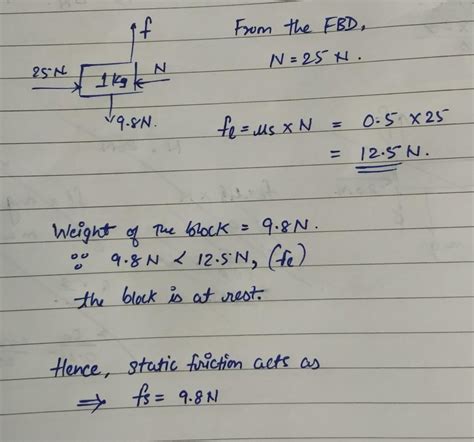 f
From the FBD,
25 N
1 kg
N
N = 25 N.
9.8 N.
fl = μs × N = 0.5 × 25
= 12.5 N.
Weight of the block = 9.8 N.
∵ 9.8 N < 12.5 N, (fl)
the block is at rest.
Hence, static friction acts as
⇒ fs = 9.8 N